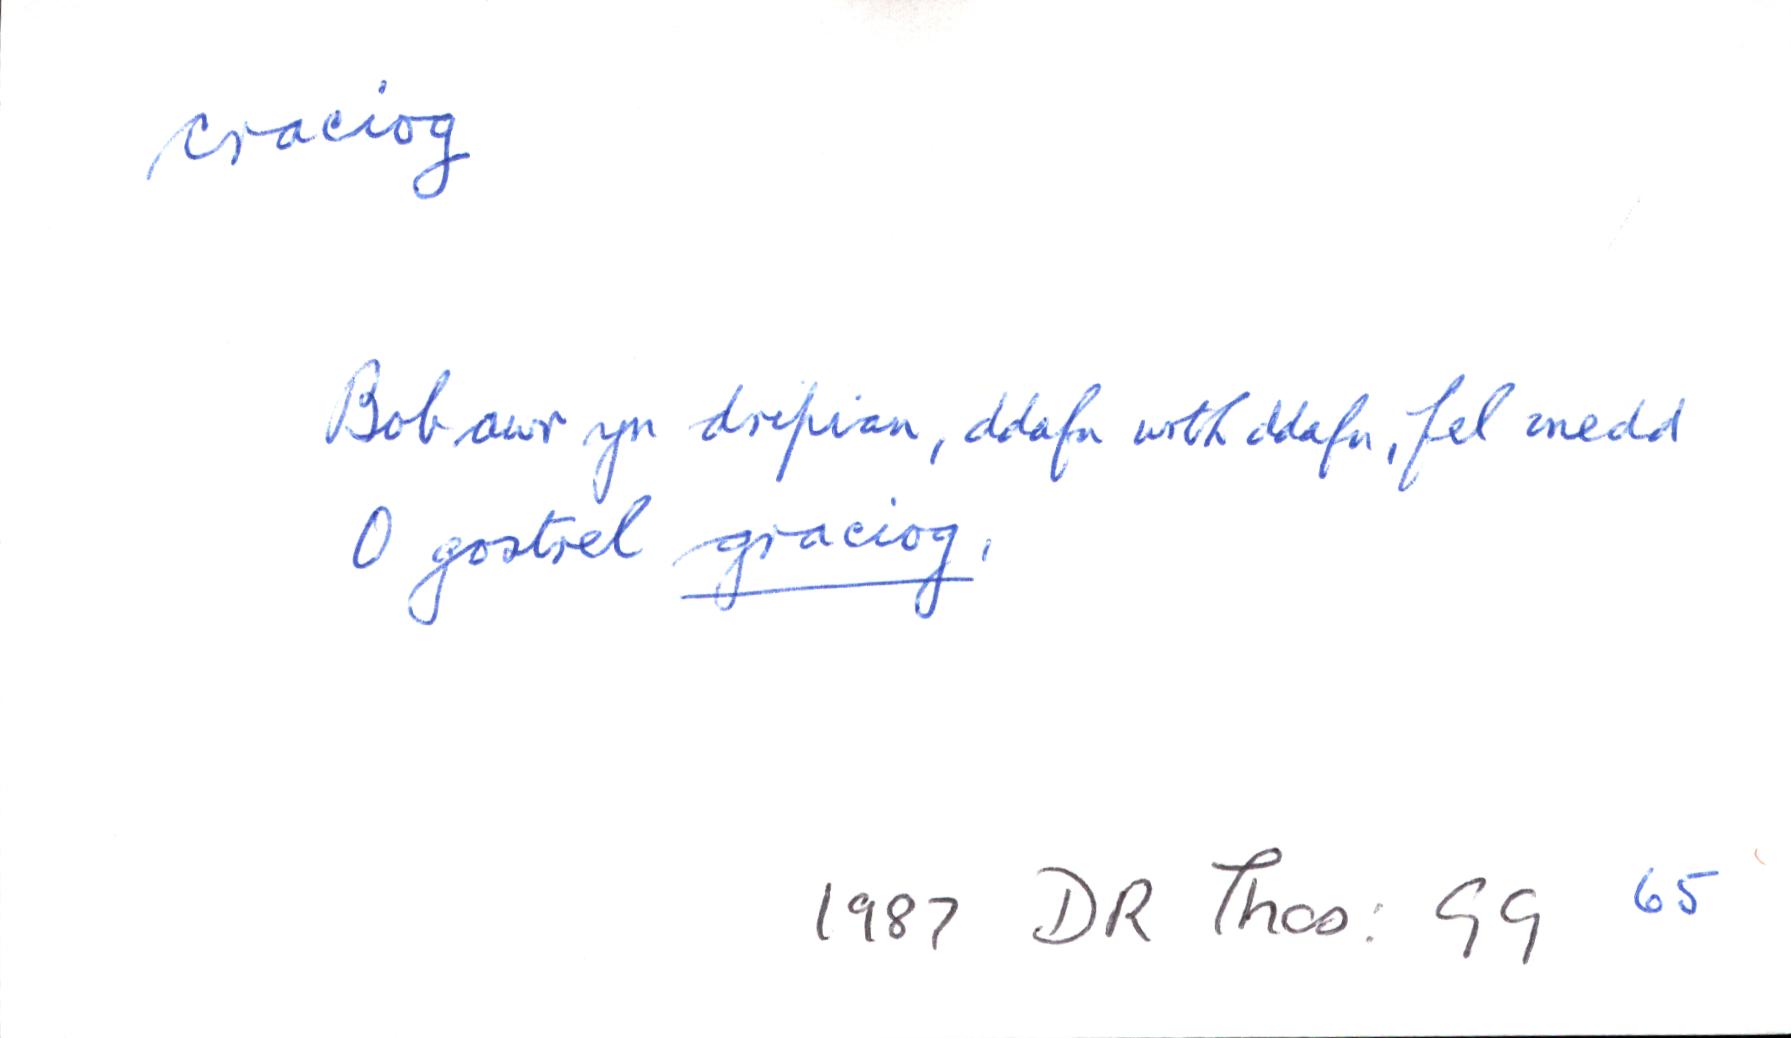 craciog
Bob awr yn dripian, ddafn wrth ddafn, fel medd
O gostrel graciog,
1987 DR Thos: GG 65